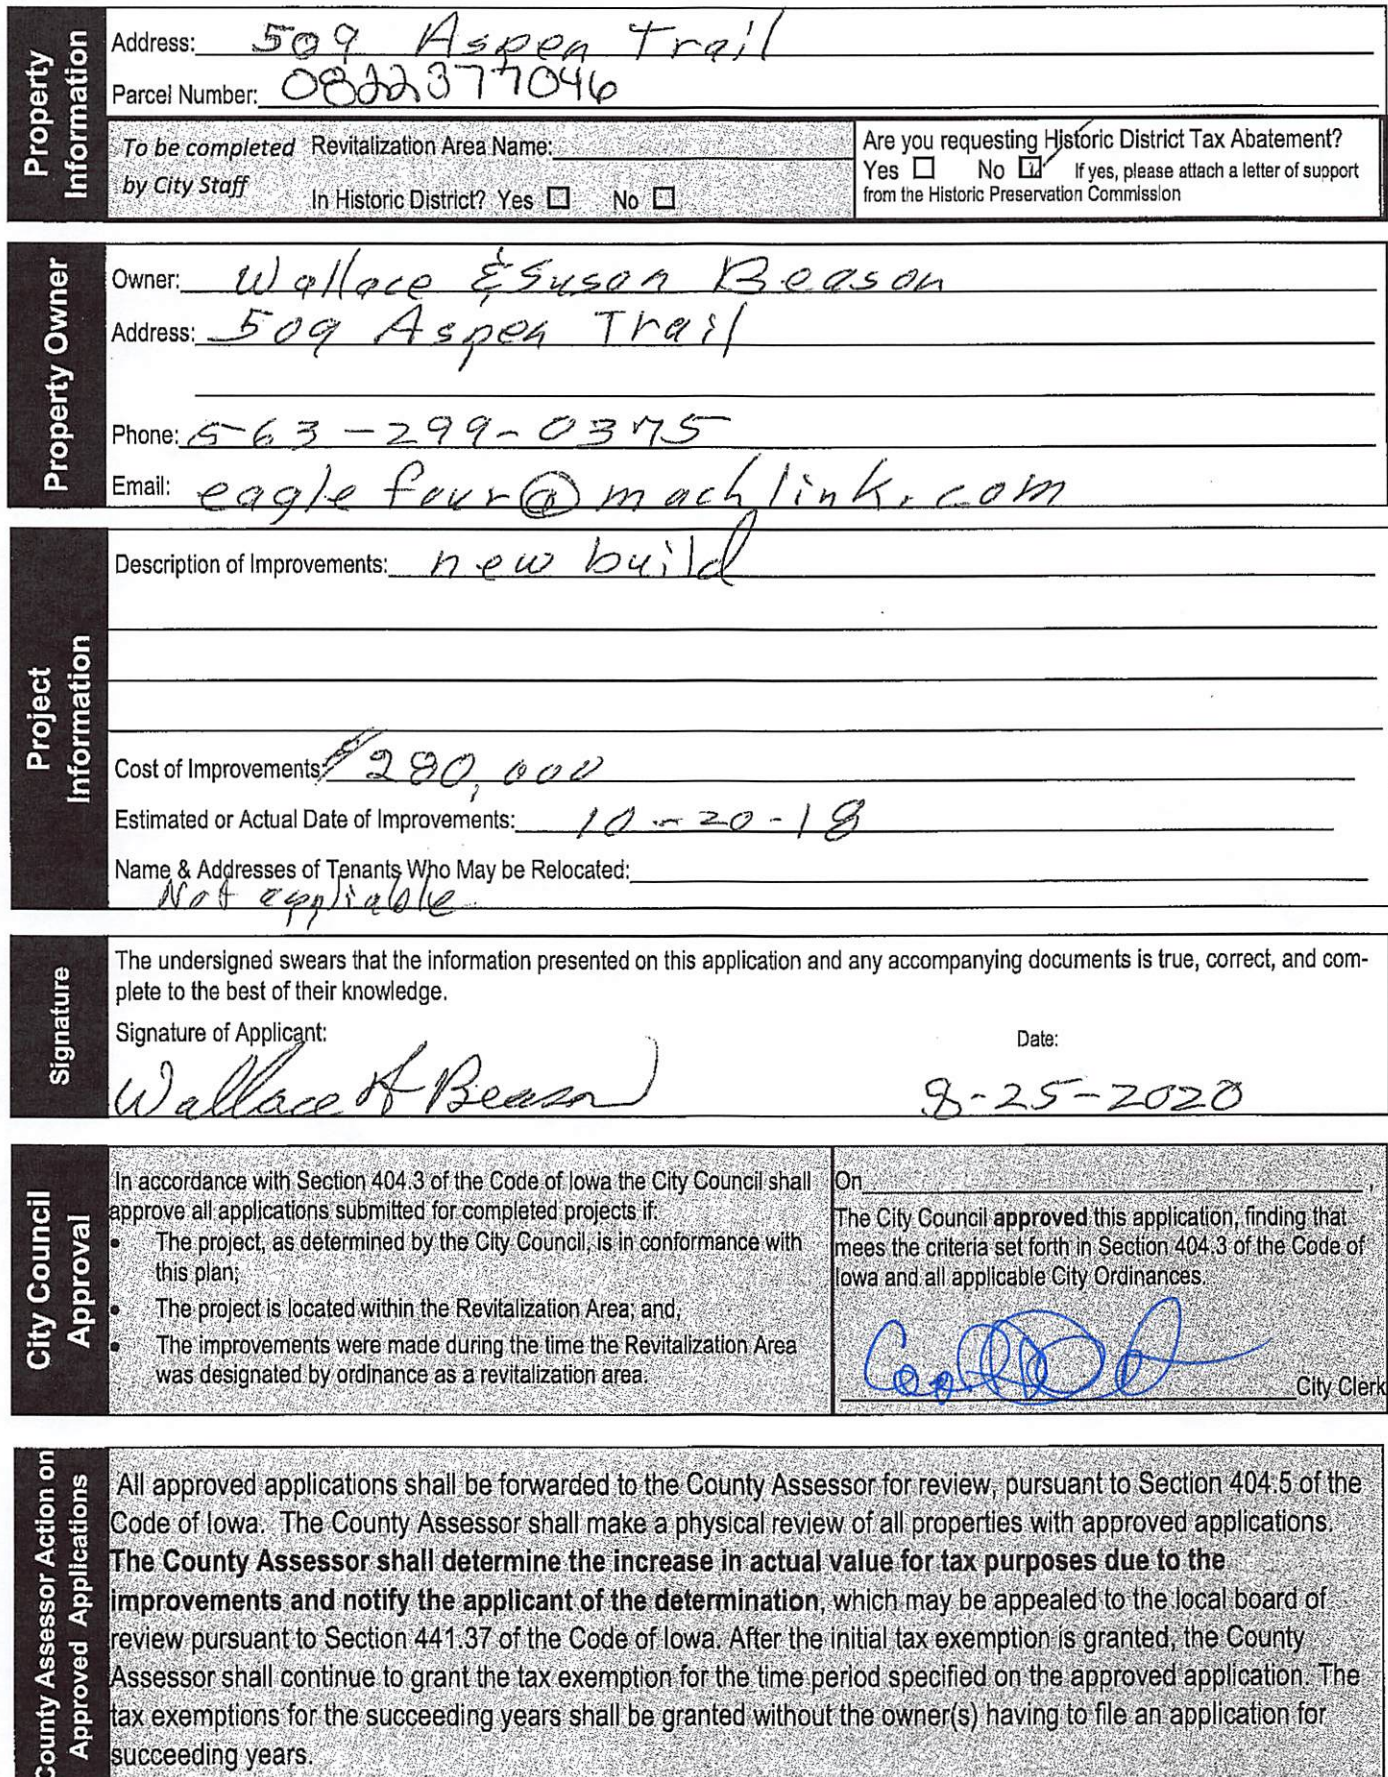 Property
Information
Address: 509 Aspen Trail
Parcel Number: 0822377046
To be completed
by City Staff
Revitalization Area Name:
In Historic District? Yes ☐ No ☐
Are you requesting Historic District Tax Abatement?
Yes ☐ No ☑ If yes, please attach a letter of support
from the Historic Preservation Commission
Property Owner
Owner: Wallace & Susan Beason
Address: 509 Aspen Trail
Phone: 563-299-0375
Email: eaglefour@machlink.com
Project
Information
Description of Improvements: new build
Cost of Improvements $280,000
Estimated or Actual Date of Improvements: 10-20-18
Name & Addresses of Tenants Who May be Relocated:
Not appliable
Signature
The undersigned swears that the information presented on this application and any accompanying documents is true, correct, and com-
plete to the best of their knowledge.
Signature of Applicant:
Date:
Wallace A Beason 8-25-2020
City Council
Approval
In accordance with Section 404.3 of the Code of Iowa the City Council shall
approve all applications submitted for completed projects if:
• The project, as determined by the City Council, is in conformance with
this plan;
• The project is located within the Revitalization Area; and,
• The improvements were made during the time the Revitalization Area
was designated by ordinance as a revitalization area.
On ,
The City Council approved this application, finding that
mees the criteria set forth in Section 404.3 of the Code of
Iowa and all applicable City Ordinances.
City Clerk
County Assessor Action on
Approved Applications
All approved applications shall be forwarded to the County Assessor for review, pursuant to Section 404.5 of the
Code of Iowa. The County Assessor shall make a physical review of all properties with approved applications.
The County Assessor shall determine the increase in actual value for tax purposes due to the
improvements and notify the applicant of the determination, which may be appealed to the local board of
review pursuant to Section 441.37 of the Code of Iowa. After the initial tax exemption is granted, the County
Assessor shall continue to grant the tax exemption for the time period specified on the approved application. The
tax exemptions for the succeeding years shall be granted without the owner(s) having to file an application for
succeeding years.